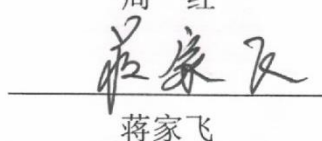 周 红
蒋家飞
蒋家飞